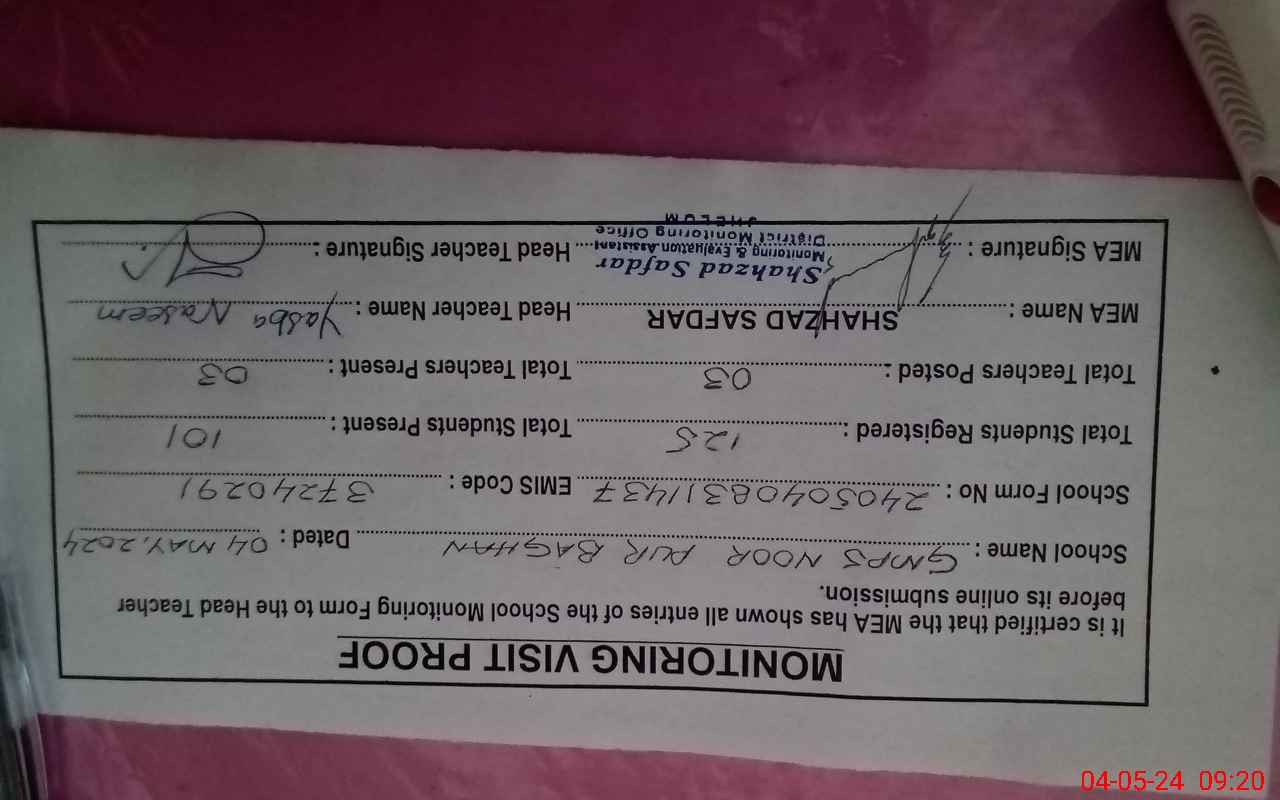 MONITORING VISIT PROOF
It is certified that the MEA has shown all entries of the School Monitoring Form to the Head Teacher
before its online submission.
School Name : GMPS NOOR PUR BAGHAN Dated : 04 MAY, 2024
School Form No : 24050408311437 EMIS Code : 37240291
Total Students Registered : 125 Total Students Present : 101
Total Teachers Posted : 03 Total Teachers Present : 03
MEA Name : SHAHZAD SAFDAR Head Teacher Name : Yasba Naseem
MEA Signature : Head Teacher Signature :
Shahzad Safdar
Monitoring & Evaluation Assistant
District Monitoring Office
JHELUM
04-05-24 09:20